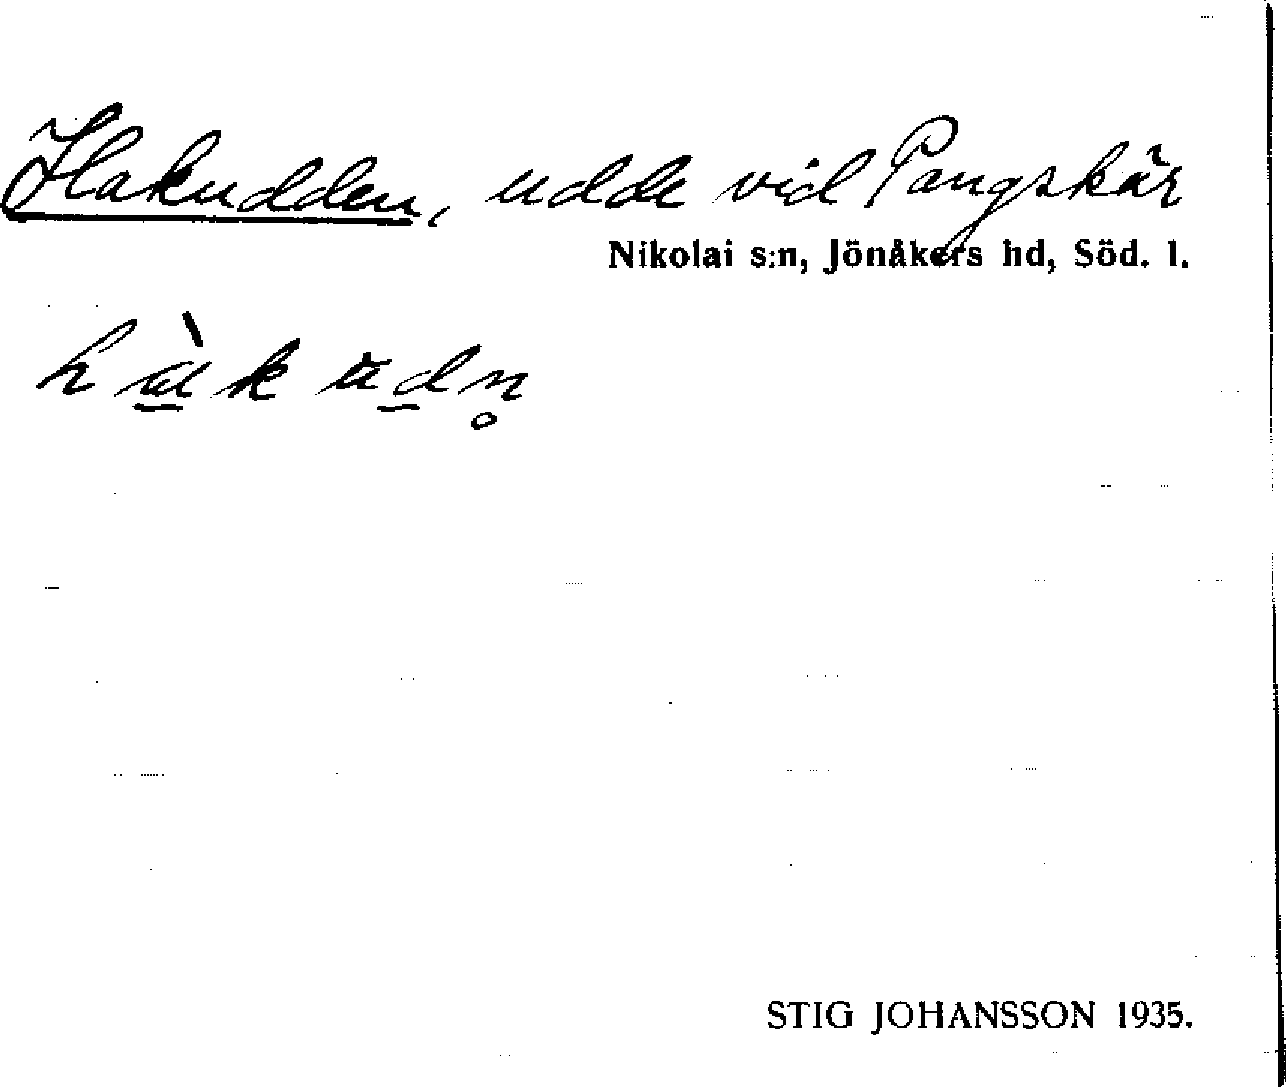 Hakudden, udde vid Pangskär
Nikolai s:n, Jönåkers hd, Söd. l.
hà̱k uḏn̥
STIG JOHANSSON 1935.